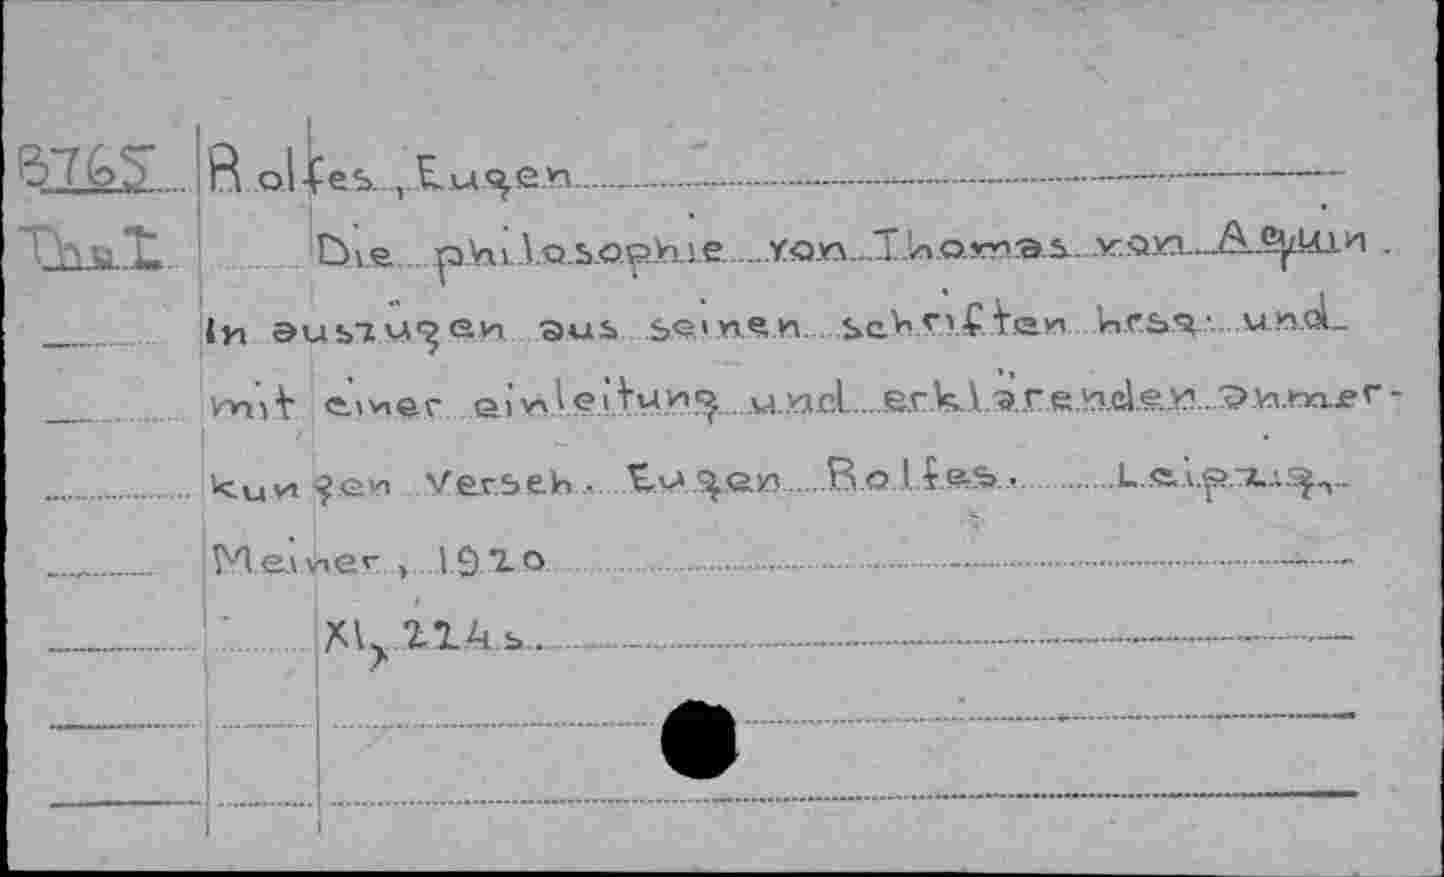 B765 Rolfes, Eugen
Th5t Die philosophie von Thomas von Aquin.
In auszügen aus seinen schriften hrsg. und
mit einer einleitung und erklärenden anmer-
kungen verseh. Eugen Rolfes. Leipzig,
Meiner, 1920
XI, 224 s.